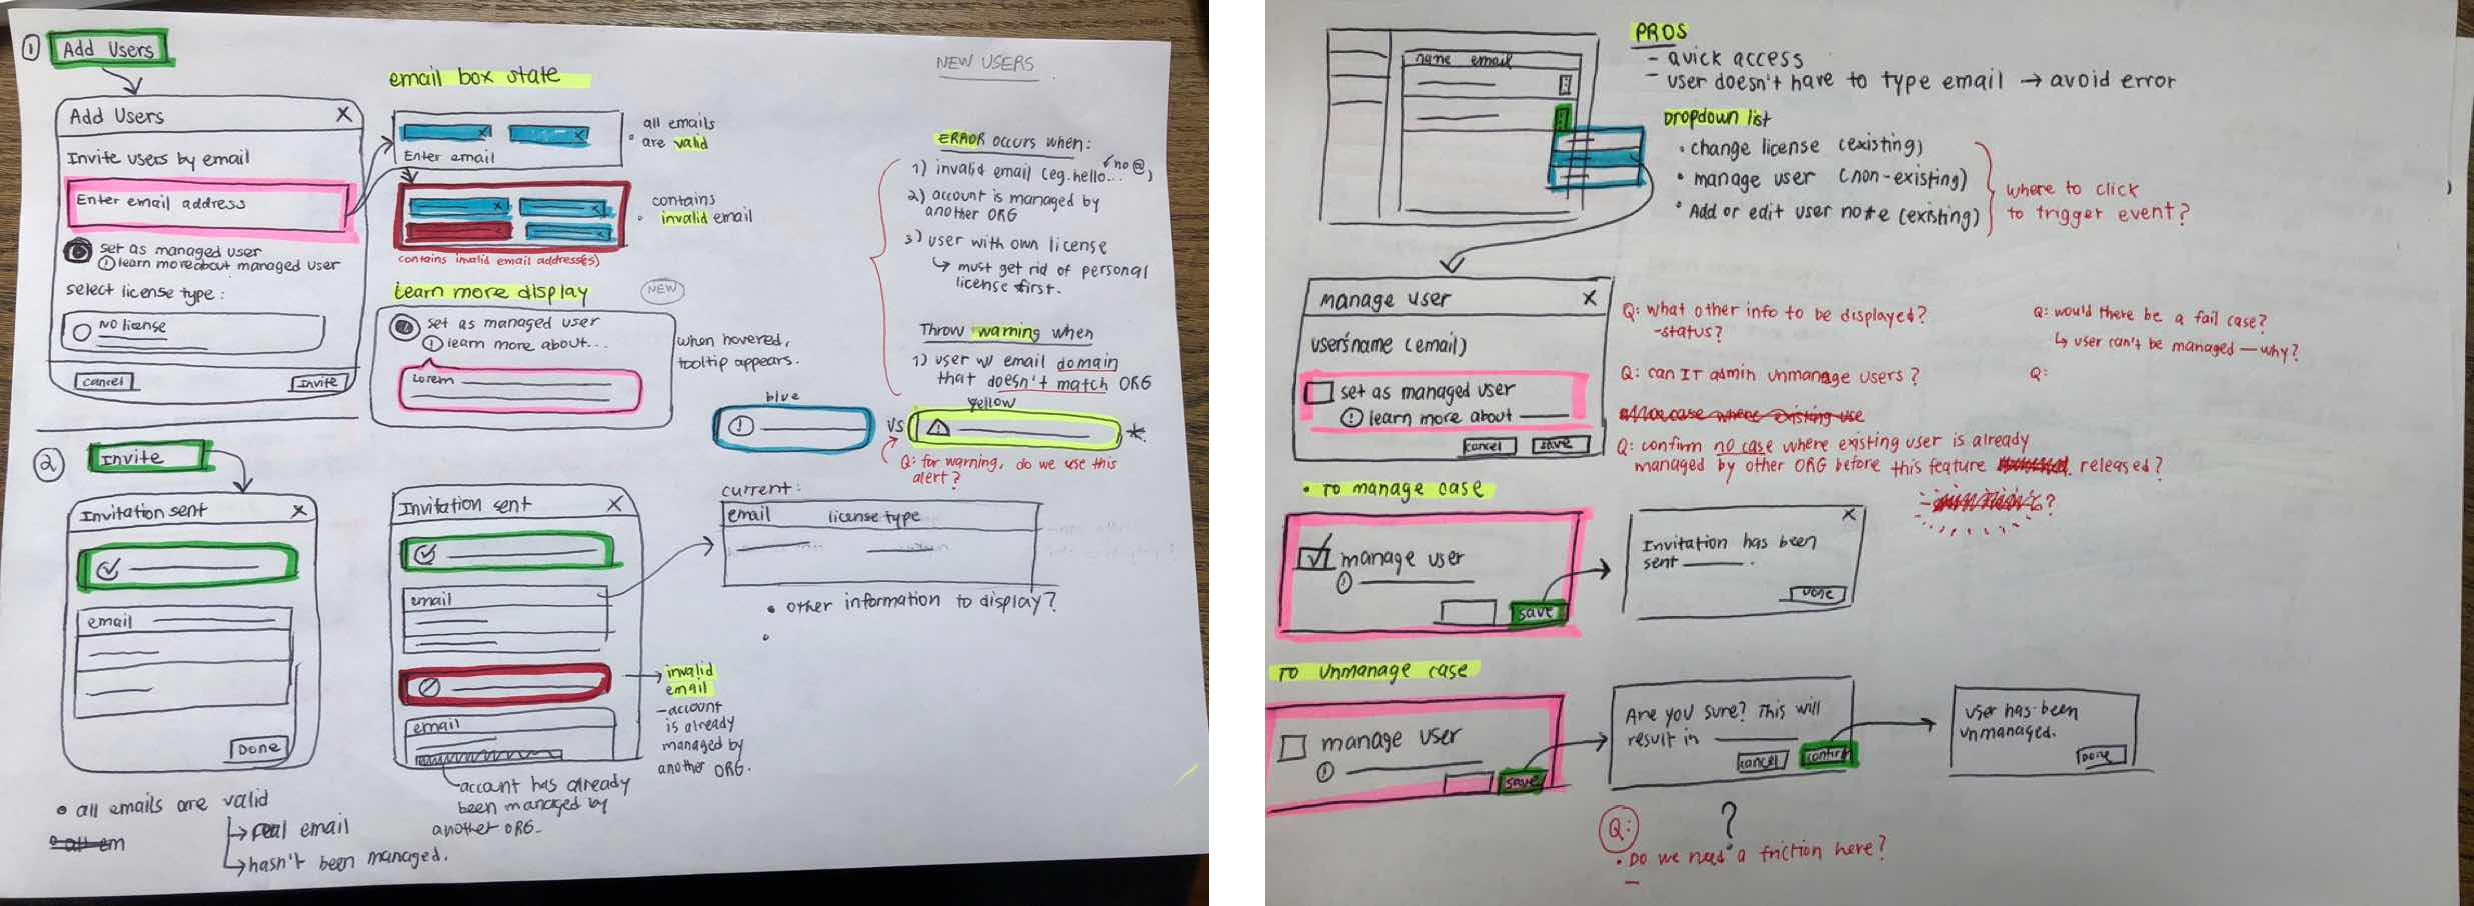 1 Add Users
Add Users X
Invite users by email
Enter email address
set as managed user
! learn more about managed user
select license type:
No license
cancel
Invite
email box state
x x
Enter email
• all emails
are valid
x x
x x
contains invalid email addresses)
contains
• invalid email
Learn more display
NEW
set as managed user
! learn more about...
Lorem
when hovered,
tooltip appears.
NEW USERS
ERROR occurs when:
1) invalid email (eg. hello... no @)
2) account is managed by
another ORG
3) user with own license
↳ must get rid of personal
license first.
Throw warning when
1) user w/ email domain
that doesn't match ORG
blue
!
VS
yellow
!
*
Q: for warning, do we use this
alert?
2 Invite
Invitation sent X
email
Done
• all emails are valid
→ real email
→ hasn't been managed.
• all em
Invitation sent X
email
email
account has already
been managed by
another ORG.
→ invalid
email
- account
is already
managed by
another ORG.
current:
email license type
• other information to display?
•
name email
PROS
- quick access
- user doesn't have to type email → avoid error
Dropdown list
• change license (existing)
• manage user (non-existing)
• Add or edit user note (existing)
where to click
to trigger event?
manage user X
user's name (email)
set as managed user
! learn more about
cancel save
Q: what other info to be displayed?
- status?
Q: can IT admin unmanage users?
Q: confirm no case where existing user is already
managed by other ORG before this feature released?
?
Q: would there be a fail case?
↳ user can't be managed — why?
Q:
• To manage case
manage user
!
save
X
Invitation has been
sent .
Done
To unmanage case
manage user
!
save
Are you sure? This will
result in
cancel confirm
user has been
unmanaged.
Done
?
Q:
• Do we need a friction here?
-